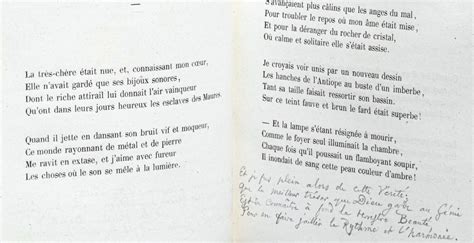 La très-chère était nue, et, connaissant mon cœur,
Elle n'avait gardé que ses bijoux sonores,
Dont le riche attirail lui donnait l'air vainqueur
Qu'ont dans leurs jours heureux les esclaves des Maures.
Quand il jette en dansant son bruit vif et moqueur,
Ce monde rayonnant de métal et de pierre
Me ravit en extase, et j'aime avec fureur
Les choses où le son se mêle à la lumière.
S'avançaient plus câlins que les anges du mal,
Pour troubler le repos où mon âme était mise,
Et pour la déranger du rocher de cristal,
Où calme et solitaire elle s'était assise.
Je croyais voir unis par un nouveau dessin
Les hanches de l'Antiope au buste d'un imberbe,
Tant sa taille faisait ressortir son bassin.
Sur ce teint fauve et brun le fard était superbe !
— Et la lampe s'étant résignée à mourir,
Comme le foyer seul illuminait la chambre,
Chaque fois qu'il poussait un flamboyant soupir,
Il inondait de sang cette peau couleur d'ambre !
Et je fus plein alors de cette Vérité,
Que le meilleur trésor que Dieu garde au Génie
Est de connaître à fond la terrestre Beauté
Pour en faire jaillir le Rythme et l'harmonie.